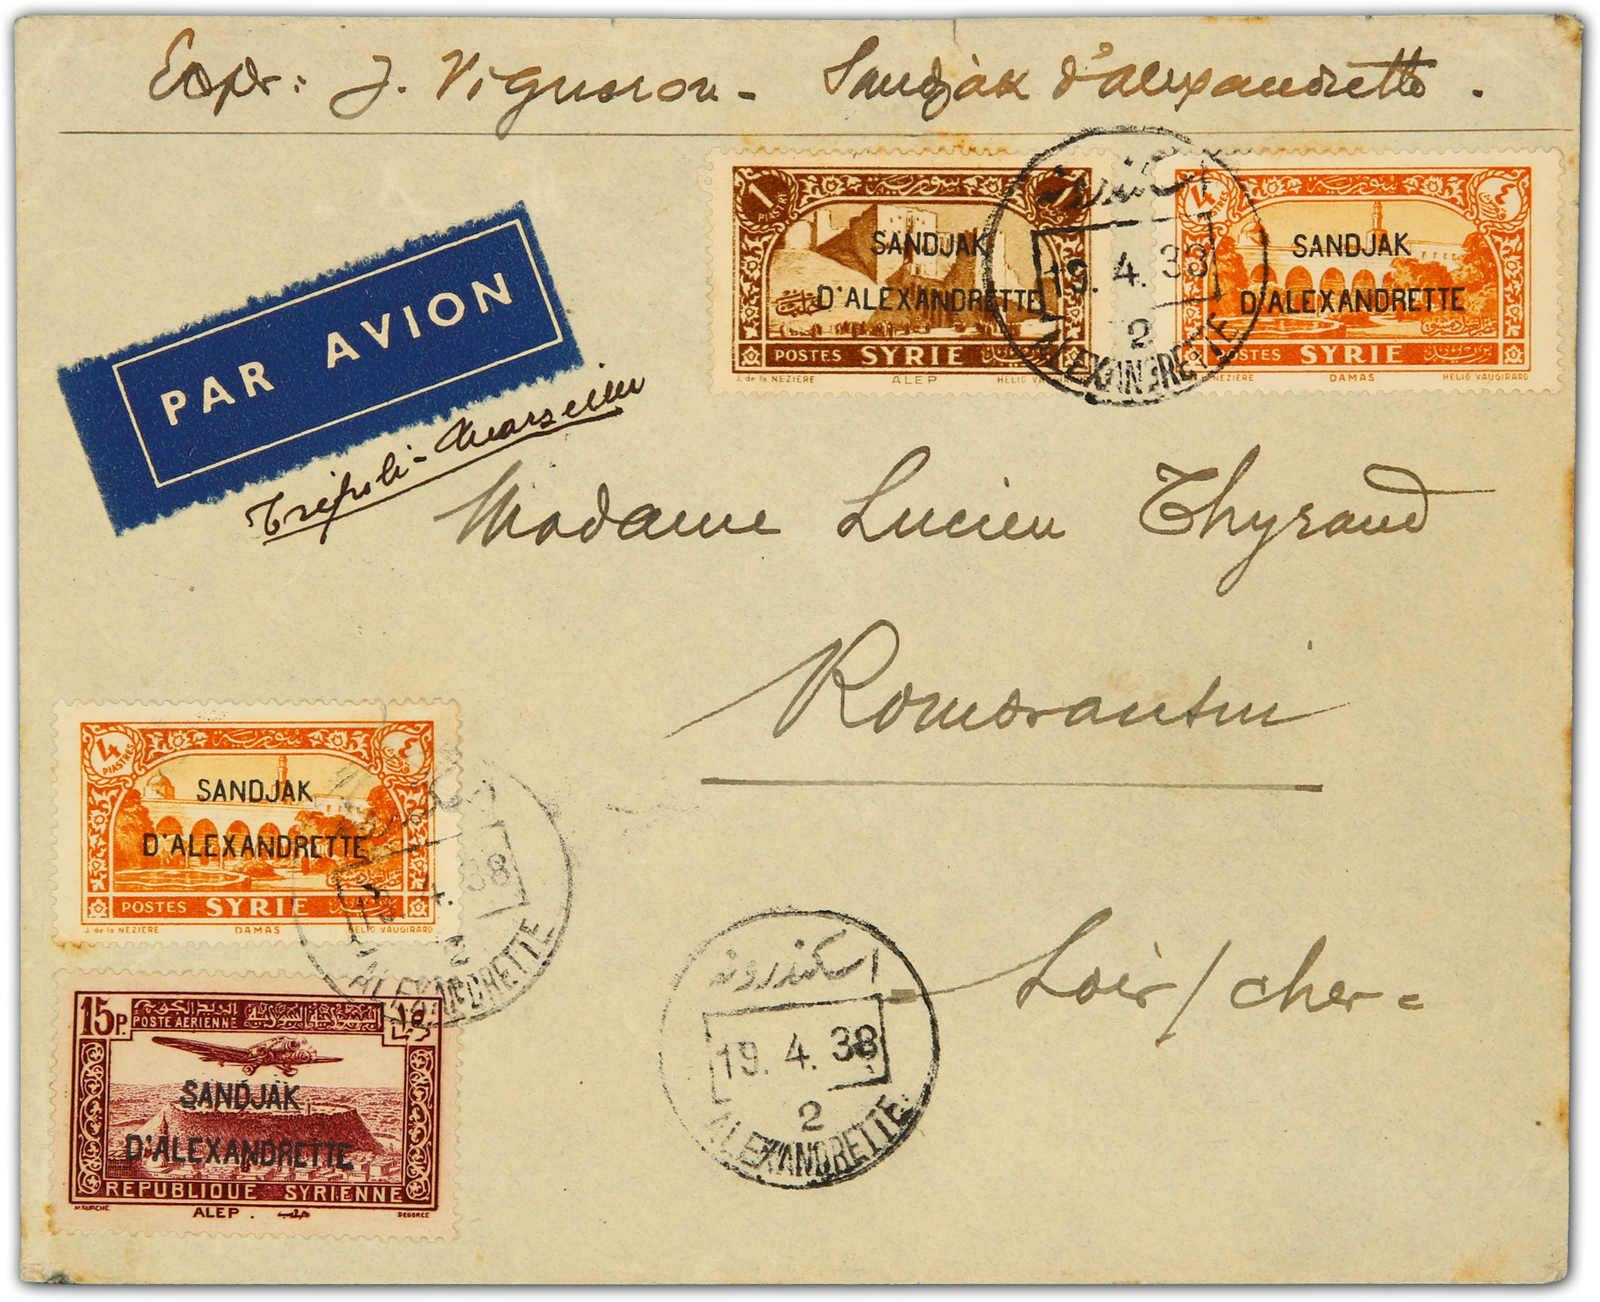 Expr: J. Vigneron - Sandjak d'alexandrette.
PAR AVION
Tripoli-Marseille
1 PIASTRE
سورية
SANDJAK
D'ALEXANDRETTE
POSTES SYRIE
J. de la NEZIERE ALEP HELIO VAUGIRARD
4 ٤
سورية
SANDJAK
D'ALEXANDRETTE
SYRIE
NEZIERE DAMAS HELIO VAUGIRARD
اسكندرونه
19.4.38
2
ALEXANDRETTE
Madame Lucien Thyraud
Romorantin
Loir/cher =
4 PIASTRES ٤
سورية
SANDJAK
D'ALEXANDRETTE
POSTES SYRIE
J. de la NEZIERE DAMAS HELIO VAUGIRARD
4.38
2
ALEXANDRETTE
15P. POSTE AERIENNE
SANDJAK
D'ALEXANDRETTE
REPUBLIQUE SYRIENNE
ALEP. حلب
DEGORCE
اسكندرونه
19.4.38
2
ALEXANDRETTE